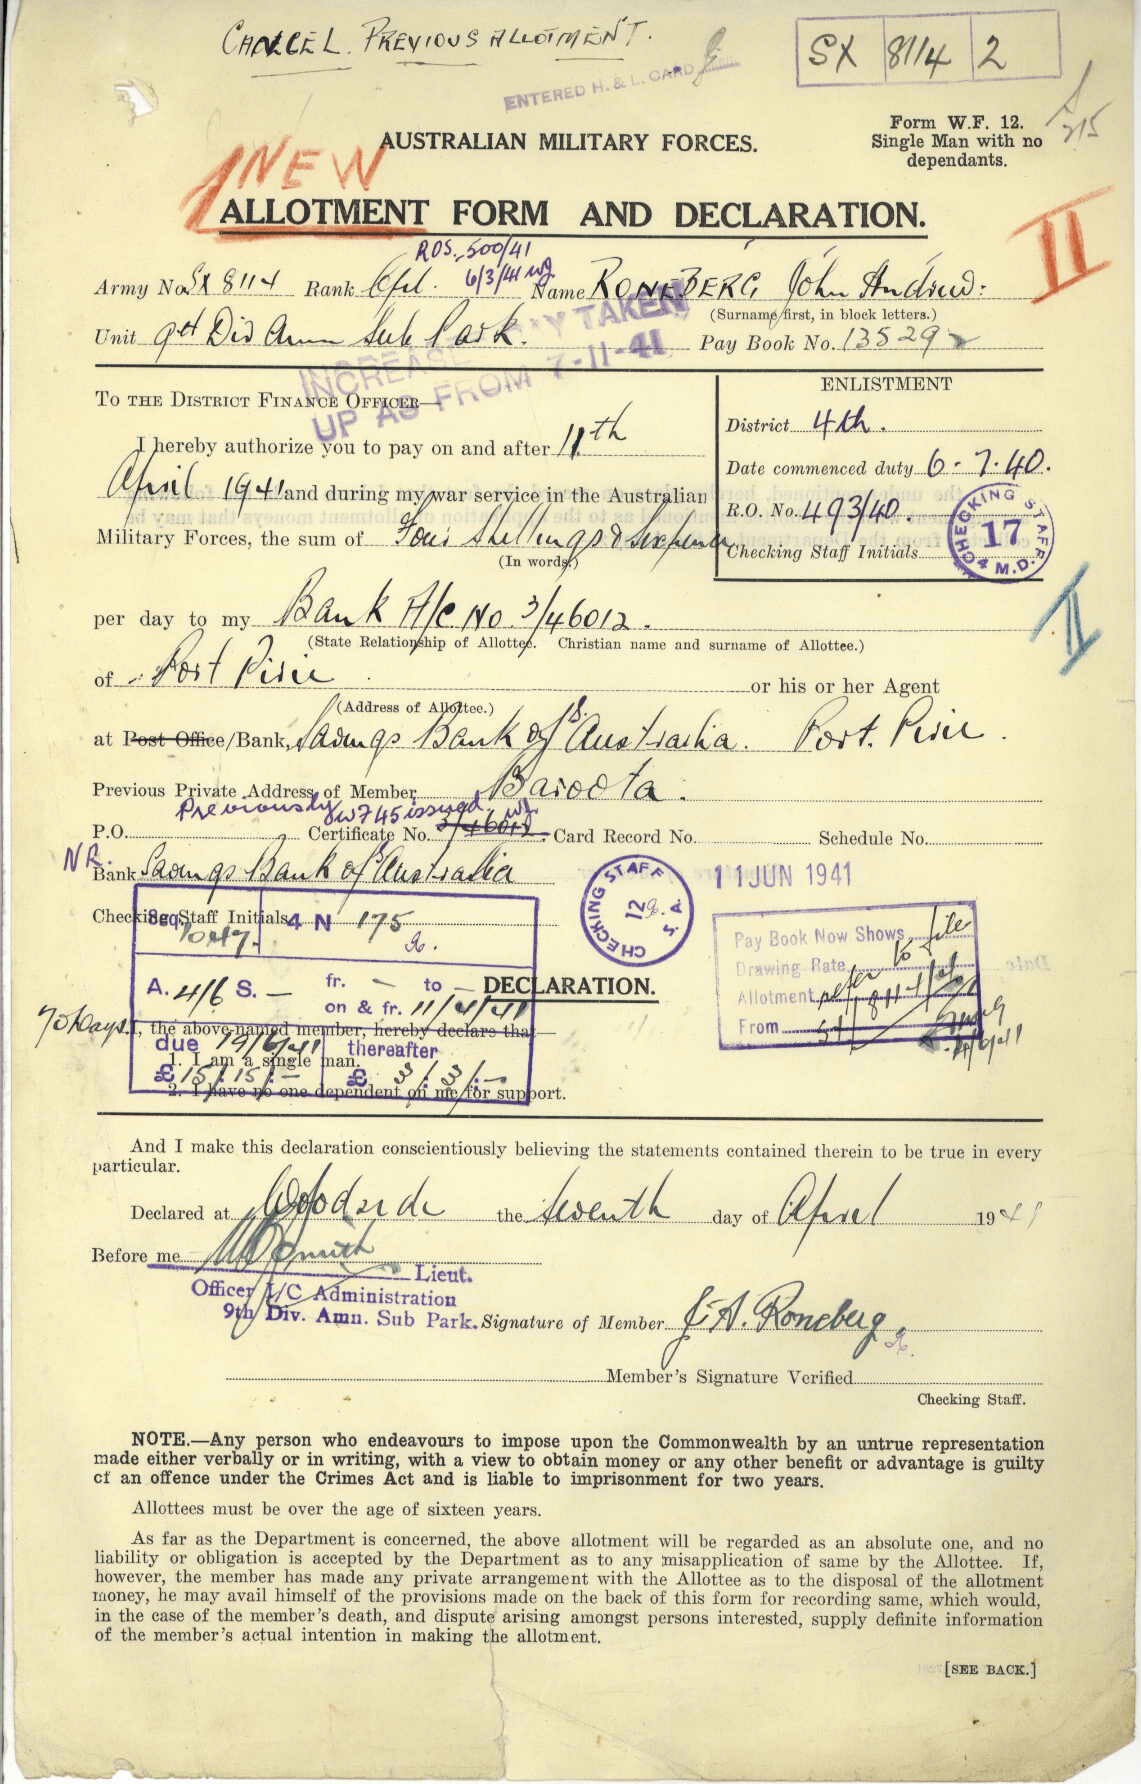 CANCEL. PREVIOUS ALLOTMENT.
ENTERED H. & L. CARD
SX 8114 2
Form W.F. 12.
Single Man with no
dependants.
NEW
AUSTRALIAN MILITARY FORCES.
ALLOTMENT FORM AND DECLARATION.
II
ROS. 500/41
6/3/41
Army No. SX 8114 Rank Cpl. Name RONEBERG John Andrew:
(Surname first, in block letters.)
Unit 9th Div Amm Sub Park. Pay Book No. 135292
INCREASE TAKEN
UP AS FROM 7-11-41
TO THE DISTRICT FINANCE OFFICER—
I hereby authorize you to pay on and after 11th
April 1941 and during my war service in the Australian
Military Forces, the sum of Four Shillings & Sixpence
(In words.)
ENLISTMENT
District 4th.
Date commenced duty 6-7-40.
R.O. No. 493/40.
Checking Staff Initials
CHECKING STAFF 17 4 M.D.
II
per day to my Bank A/c No. 3/46012.
(State Relationship of Allottee. Christian name and surname of Allottee.)
of Port Pirie or his or her Agent
(Address of Allottee.)
at Post Office/Bank, Savings Bank of S. Australia. Port. Pirie.
Previous Private Address of Member Baroota.
Previously W745 issued
P.O. Certificate No. 3/46012 Card Record No. Schedule No.
NR.
Bank Savings Bank of S. Australia
CHECKING STAFF 12 S.A.
11 JUN 1941
Checking Staff Initials
Seq. 4 N 175
A. 4/6 S. — fr. — to —
on & fr. 11/4/41
DECLARATION.
Pay Book Now Shows
Drawing Rate
Allotment
From
refer to file
70 Days.
I, the above-named member, hereby declare that—
due 19/6/41 thereafter
1. I am a single man.
£ 15/15/- £ 3/3/-
2. I have no one dependent on me for support.
And I make this declaration conscientiously believing the statements contained therein to be true in every
particular.
Declared at Woodside the Seventh day of April 1941
Before me Smith Lieut.
Officer I/C Administration
9th Div. Amn. Sub Park.
Signature of Member J. A. Roneberg
Member's Signature Verified
Checking Staff.
NOTE.—Any person who endeavours to impose upon the Commonwealth by an untrue representation
made either verbally or in writing, with a view to obtain money or any other benefit or advantage is guilty
of an offence under the Crimes Act and is liable to imprisonment for two years.
Allottees must be over the age of sixteen years.
As far as the Department is concerned, the above allotment will be regarded as an absolute one, and no
liability or obligation is accepted by the Department as to any misapplication of same by the Allottee. If,
however, the member has made any private arrangement with the Allottee as to the disposal of the allotment
money, he may avail himself of the provisions made on the back of this form for recording same, which would,
in the case of the member's death, and dispute arising amongst persons interested, supply definite information
of the member's actual intention in making the allotment.
[SEE BACK.]